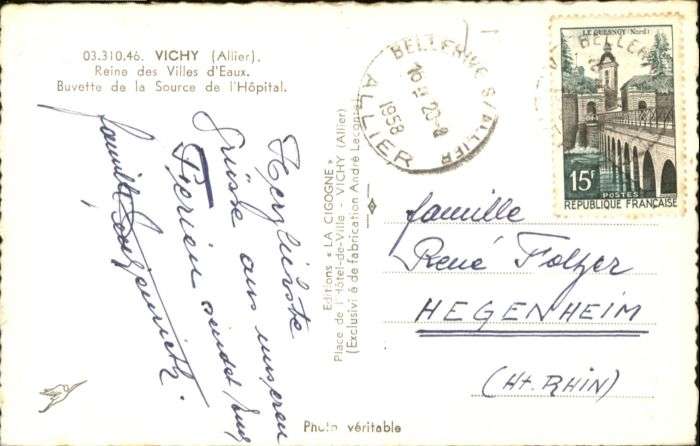 03.310.46. VICHY (Allier).
Reine des Villes d'Eaux.
Buvette de la Source de l'Hôpital.
Herzlichste
Grüsse aus unseren
Ferien sendet Euch
famille
Editions « LA CIGOGNE »
Place de l'Hôtel-de-Ville - VICHY (Allier)
(Exclusivité de fabrication André Leconte)
BELLERIVE S/ALLIER
1958
ALLIER
LE QUESNOY (Nord)
15F
POSTES
REPUBLIQUE FRANÇAISE
famille
René Folzer
HEGENHEIM
(Ht. RHIN)
Photo véritable